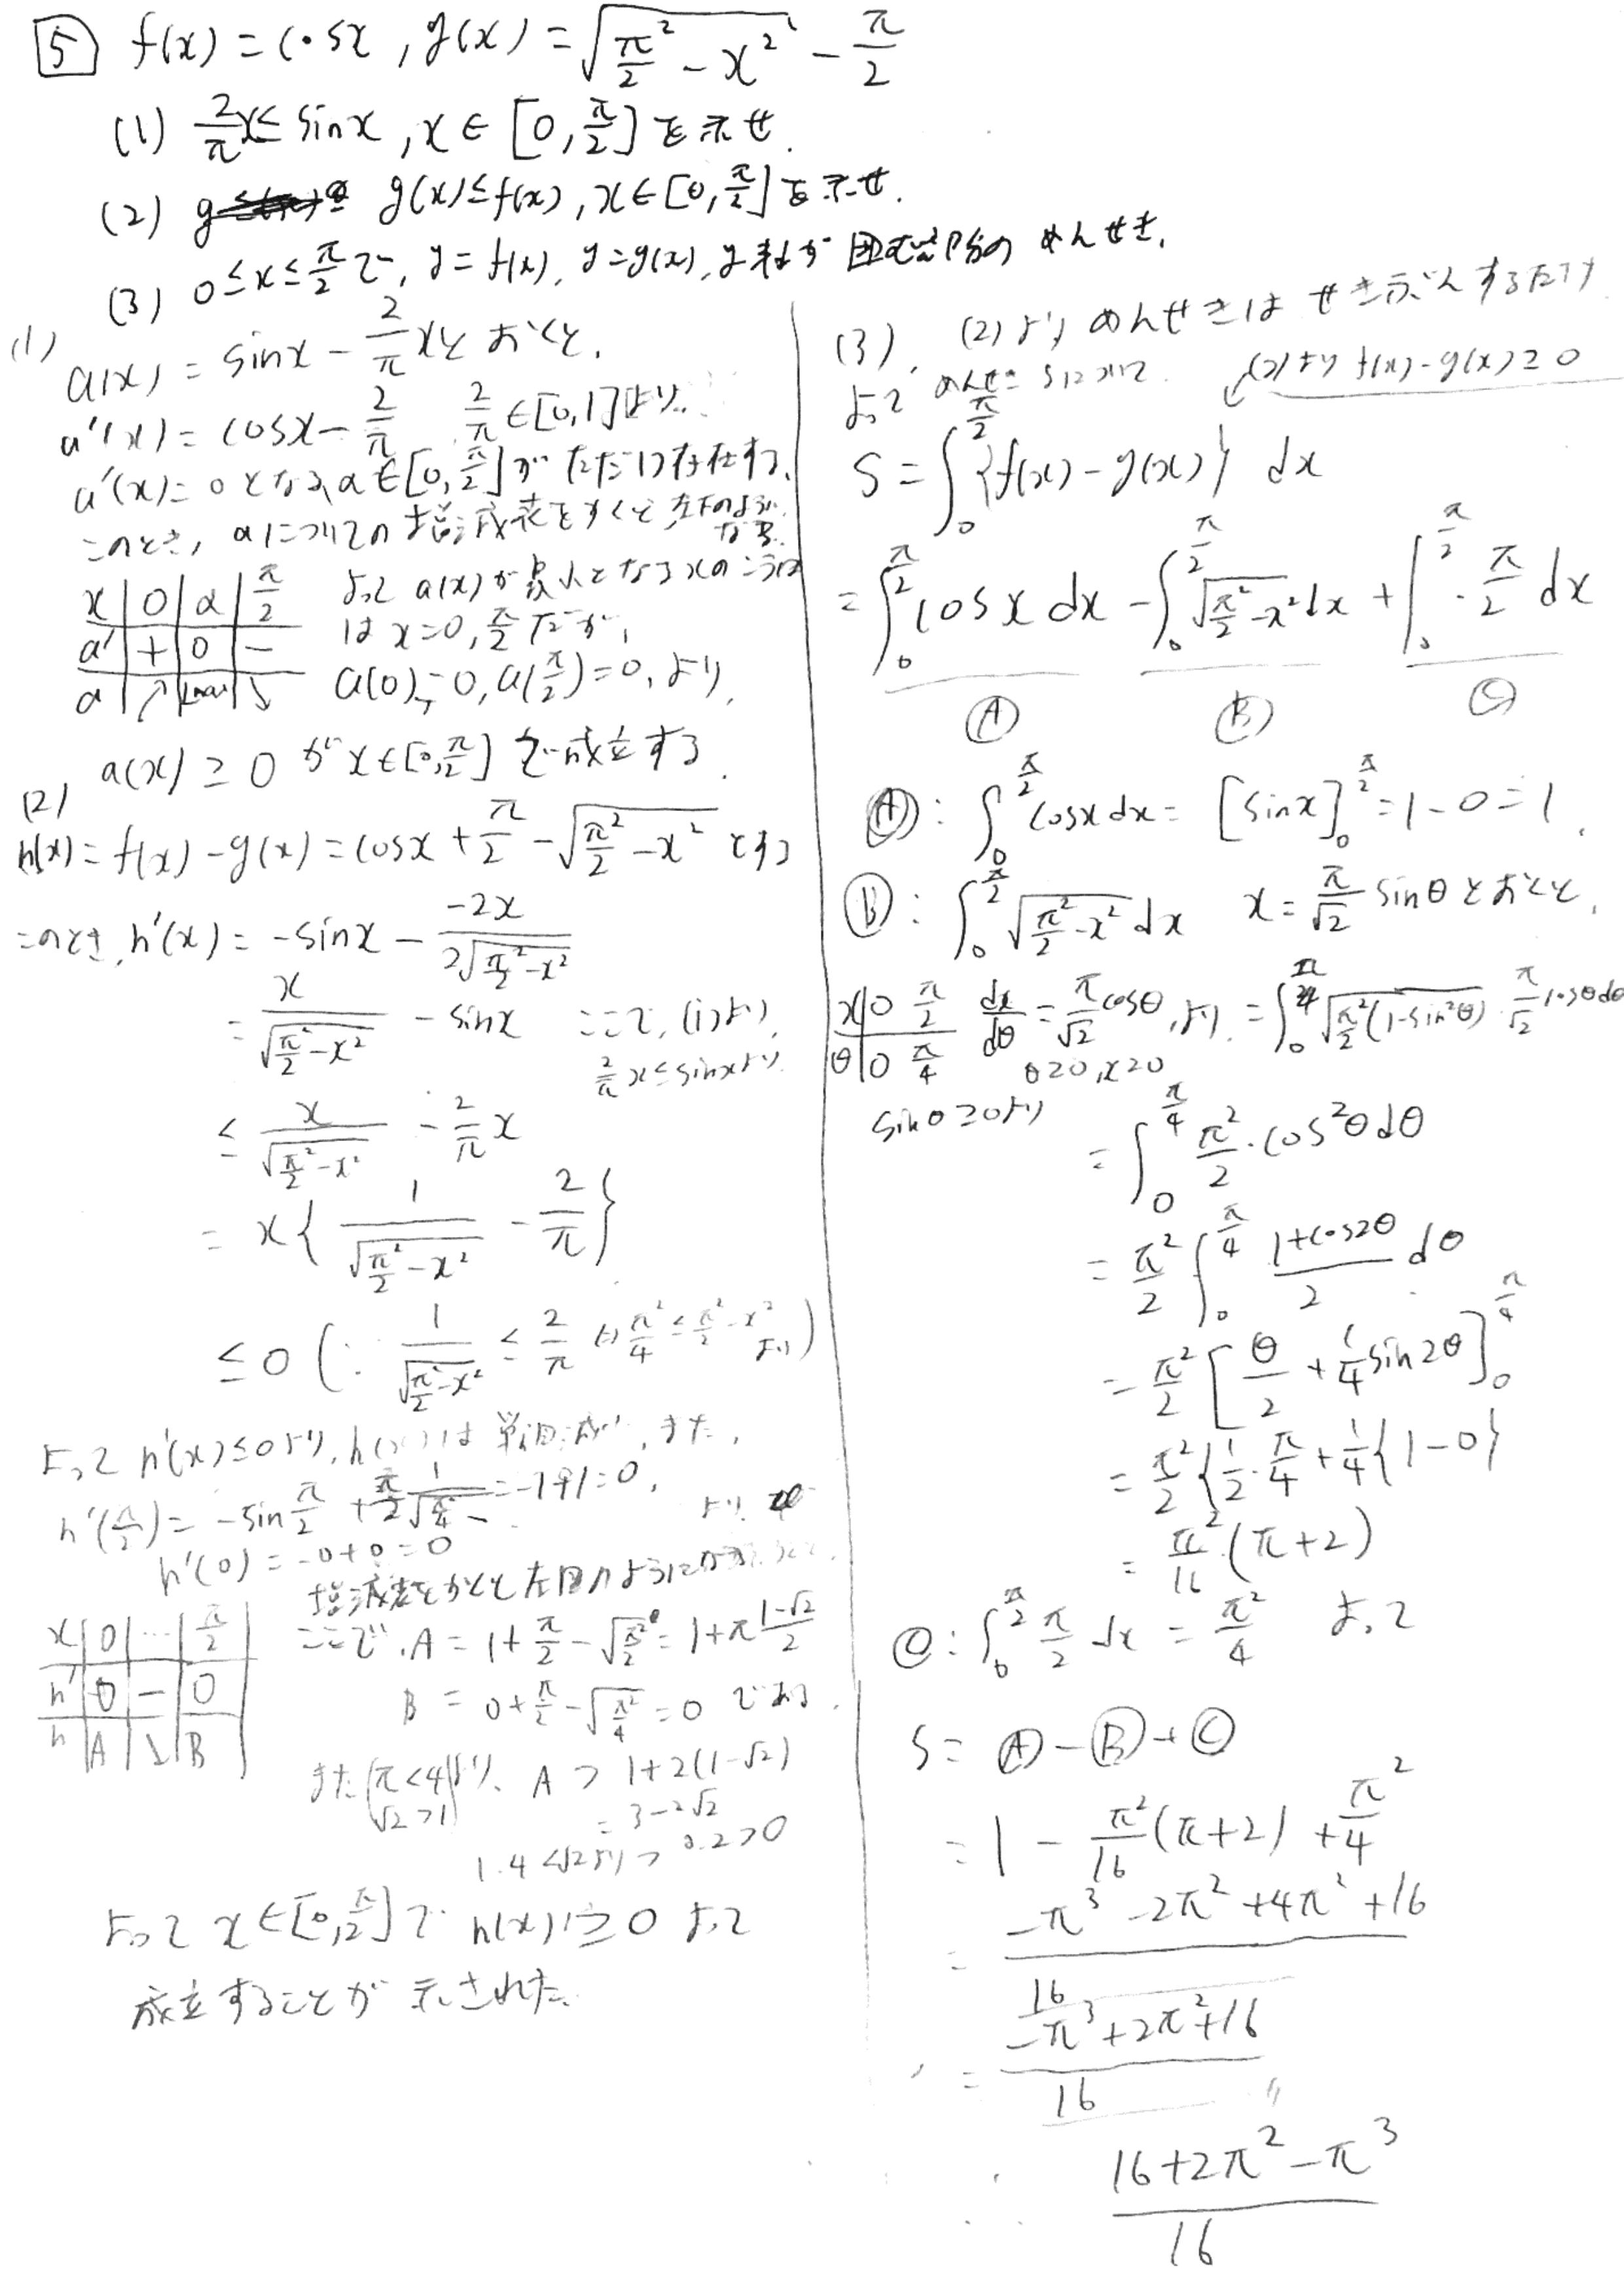 5 f(x) = cosx , g(x) = √(π²/2 - x²) - π/2
(1) 2/π x ≤ sinx , x ∈ [0, π/2] を示せ.
(2) g(x) ≤ f(x), x ∈ [0, π/2] を示せ.
(3) 0 ≤ x ≤ π/2 で, y = f(x), y = g(x), y軸が囲む部分の めんせき.
(1)
a(x) = sinx - 2/π x とおくと,
a'(x) = cosx - 2/π 2/π ∈ [0,1] より.
a'(x) = 0 となる α ∈ [0, π/2] が ただ1つ存在する.
このとき, aについての増減表をかくと 左下のように
なる.
x 0 α π/2
a' + 0 -
a ↗ max ↘
よって a(x)が最小となるxの
は x=0, π/2 だが,
a(0) = 0, a(π/2) = 0, より,
a(x) ≥ 0 が x ∈ [0, π/2] で成立する.
(2)
h(x) = f(x) - g(x) = cosx + π/2 - √(π²/2 - x²) とする
このとき, h'(x) = -sinx - -2x / 2√(π²/2 - x²)
= x / √(π²/2 - x²) - sinx ここで, (1)より,
2/π x ≤ sinxより
≤ x / √(π²/2 - x²) - 2/π x
= x { 1 / √(π²/2 - x²) - 2/π }
≤ 0 (∵ 1 / √(π²/2 - x²) ≤ 2/π ⇔ π²/4 ≤ π²/2 - x² より)
よって h'(x) ≤ 0 より, h(x)は 単調減少, また,
h'(π/2) = -sin π/2 + π/2 1/√(π²/4) = -1+1 = 0,
より
h'(0) = -0+0 = 0
増減表をかくと左図のように
x 0 … π/2
h' 0 - 0
h A ↘ B
ここで, A = 1 + π/2 - √(π²/2) = 1 + π (1-√2)/2
B = 0 + π/2 - √(π²/4) = 0 である.
また (π < 4 √2 > 1) より, A > 1 + 2(1-√2)
= 3 - 2√2
1.4 < √2より > 0.2 > 0
よって x ∈ [0, π/2] で h(x) ≥ 0 よって
成立することが示された.
(3), (2)より めんせきは せきぶんするだけ
よって めんせき Sについて (2)より f(x) - g(x) ≥ 0
S = ∫₀^(π/2) {f(x) - g(x)} dx
= ∫₀^(π/2) cosx dx - ∫₀^(π/2) √(π²/2 - x²) dx + ∫₀^(π/2) π/2 dx
Ⓐ Ⓑ Ⓒ
Ⓐ: ∫₀^(π/2) cosx dx = [sinx]₀^(π/2) = 1 - 0 = 1.
Ⓑ: ∫₀^(π/2) √(π²/2 - x²) dx x = π/√2 sinθ とおくと,
x 0 π/2
θ 0 π/4
dx/dθ = π/√2 cosθ, より, = ∫₀^(π/4) √(π²/2 (1-sin²θ)) · π/√2 cosθdθ
θ ≥ 0, x ≥ 0
sinθ ≥ 0より
= ∫₀^(π/4) π²/2 · cos²θdθ
= π²/2 ∫₀^(π/4) (1+cos2θ)/2 dθ
= π²/2 [θ/2 + 1/4 sin2θ]₀^(π/4)
= π²/2 {1/2 · π/4 + 1/4 {1-0}
= π²/16 (π+2)
Ⓒ: ∫₀^(π/2) π/2 dx = π²/4 よって
S = Ⓐ - Ⓑ + Ⓒ
= 1 - π²/16 (π+2) + π²/4
= (-π³ - 2π² + 4π² + 16) / 16
= (-π³ + 2π² + 16) / 16
(16 + 2π² - π³) / 16